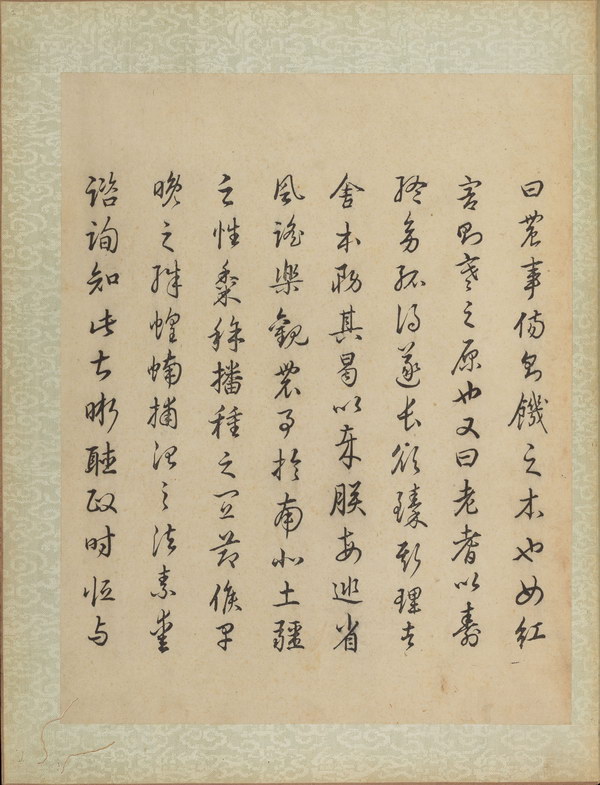 曰農事傷則饑之本也女紅
害則寒之原也又曰老耆以壽
終幼孤得遂長欲臻斯理者
舍本務其曷以哉朕每巡省
風謠樂觀農事於南北土疆
之性黍稌播種之宜節候早
晚之殊蝗蝻捕治之法素愛
諮詢知此甚晰聽政時恆与